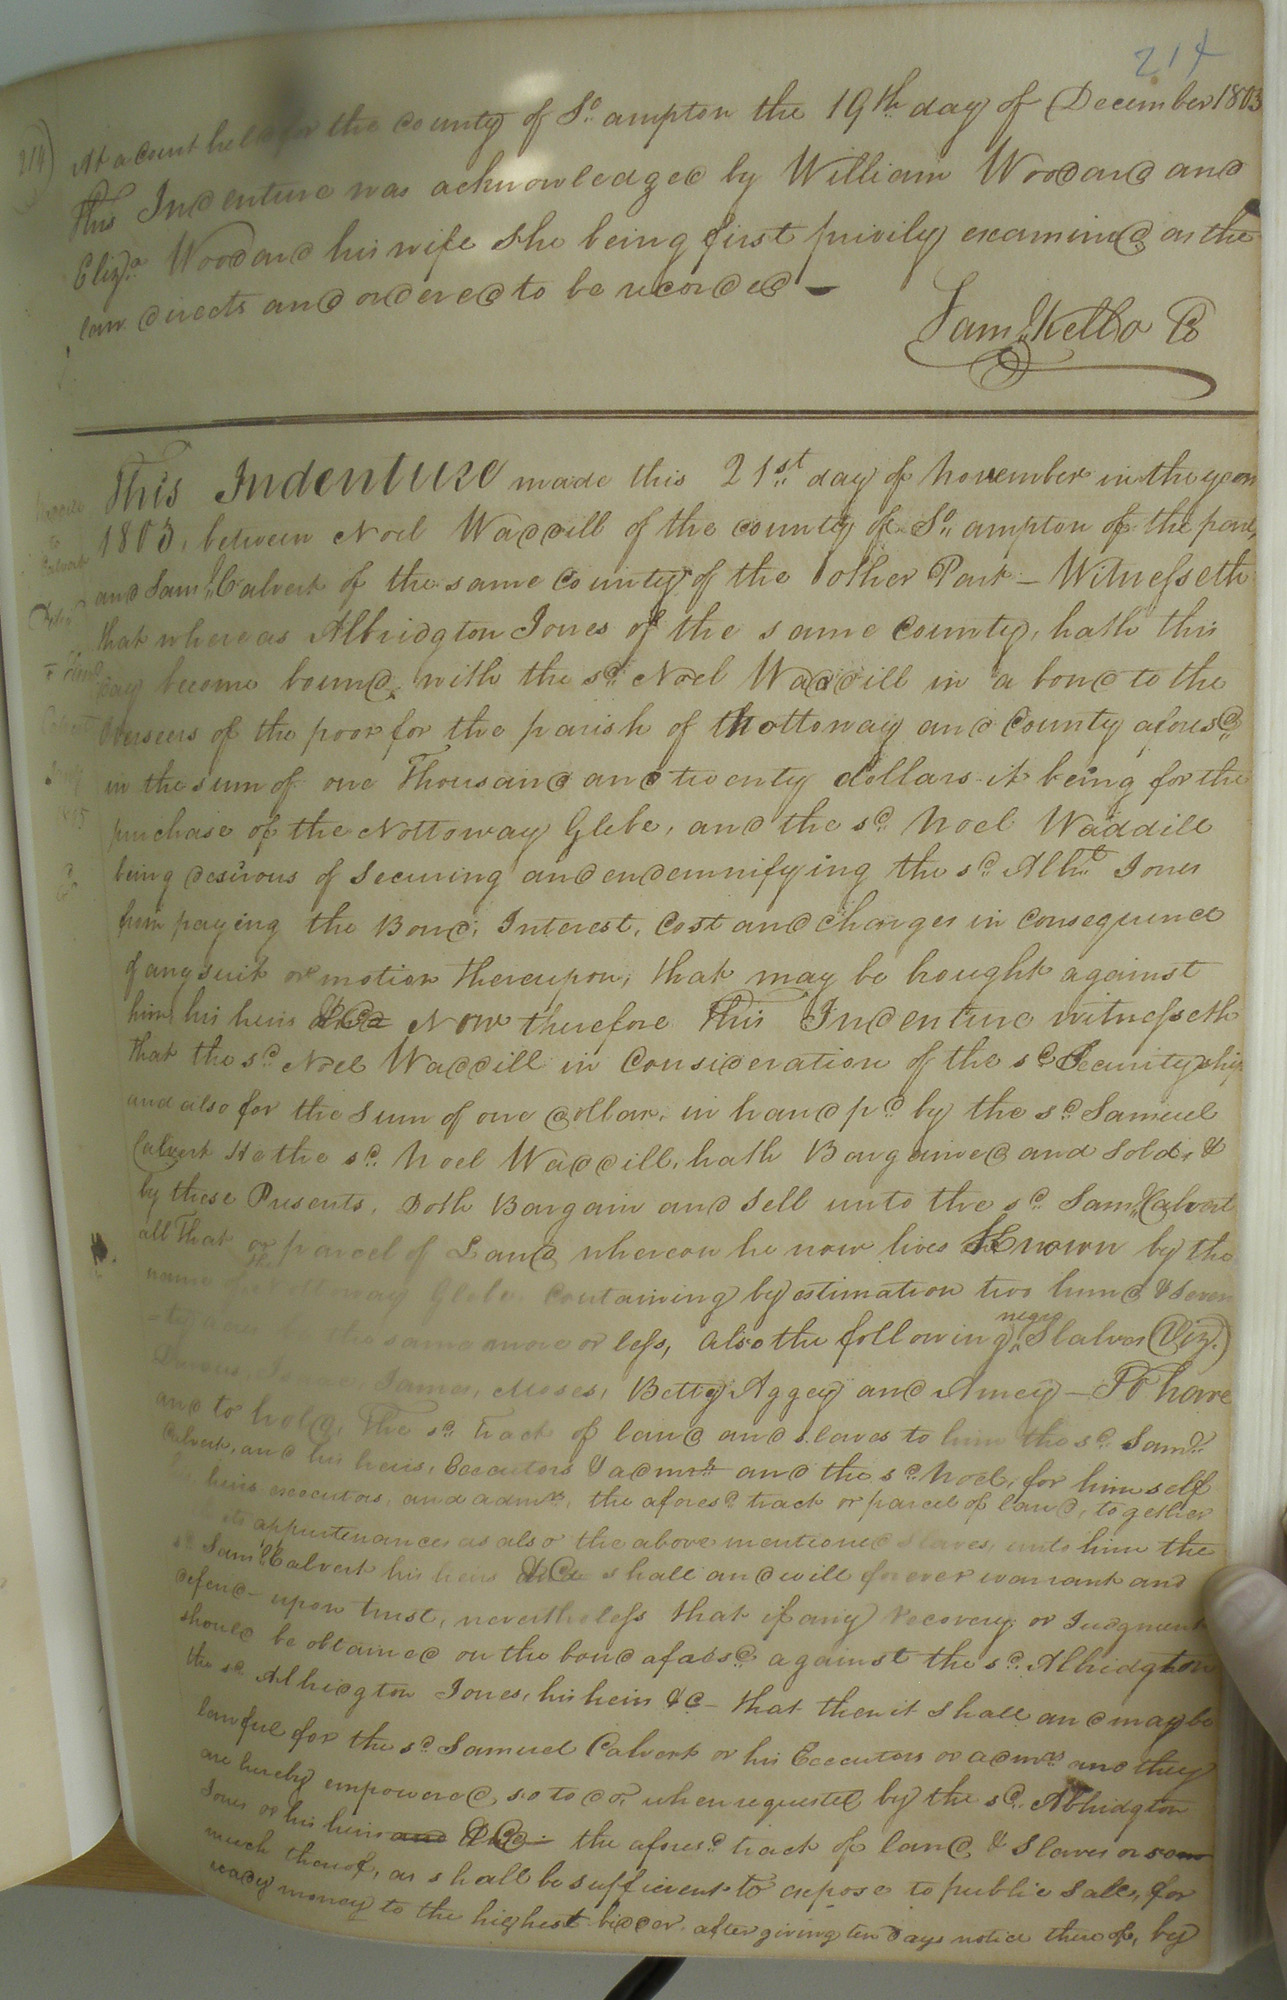 214
214)
At a Court held for the County of So. ampton the 19th day of December 1803
This Indenture was acknowledged by William Woodard and
Eliza. Woodard his wife she being first privily examined as the
law directs and ordered to be recorded —
Saml. Kello C
This Indenture made this 21st. day of November in the year
1803, between Noel Waddill of the county of So. ampton of the one part,
and Saml. Calvert of the same County of the other Part — Witnesseth
that whereas Albridgton Jones of the same County, hath this
day become bound with the sd. Noel Waddill in a bond to the
Overseers of the poor for the parish of Nottoway and County aforesd.
in the sum of one Thousand and twenty dollars it being for the
purchase of the Nottoway Glebe, and the sd. Noel Waddill
being desirous of Securing and endemnifying the sd. Albrd. Jones
from paying the Bond, Interest, Cost and Charges in Consequence
of any suit or motion thereupon, that may be bought against
him his heirs &Ca Now therefore this Indenture witnesseth
that the sd. Noel Waddill in Consideration of the sd. Securityship
and also for the Sum of one dollar, in hand pd. by the sd. Samuel
Calvert He the sd. Noel Waddill, hath Bargained and Sold, &
by these Presents, Doth Bargain and Sell unto the sd. Saml. Calvert
all that or parcel of Land whereon he now lives Known by the
name The Nottoway Glebe Containing by estimation two hund. & seven
-ty acres be the same more or less, also the following negro Slalves (Viz.)
Isaac, James, Moses, Betty Aggey and Amey — To have
and to hold, The sd. tract of land and slaves to him the sd. Saml.
Calvert, and his heirs, Executors & admrs. and the sd. Noel, for himself
heirs executors, and admrs, the aforesd. tract or parcel of land, together
its appurtenances as also the above mentioned slaves, unto him the
sd. Saml. Calvert his heirs &Ca shall and will forever warrant and
defend — upon trust, nevertheless that if any Recovery or Judgment
should be obtained on the bond afaesd. against the sd. Albridgton
the sd. Albridgton Jones, his heirs &C — that then it shall and may be
lawful for the sd. Samuel Calvert or his Executors or admrs and they
are hereby empowered, so to do, when requested by the sd. Albridgton
Jones or his heirs and &Ca. the aforesd. tract of land & Slaves or so
much thereof, as shall be sufficient to expose to public Sale, for
ready money to the highest bidder after giving ten days notice thereof, by